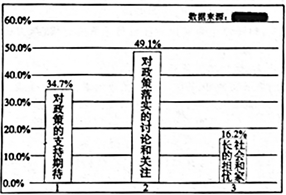 数据来源：
60.0%
50.0%
40.0%
30.0%
20.0%
10.0%
0.0%
34.7%
对政策的支持期待
49.1%
对政策落实的讨论和关注
16.2%
社会和家
长的担忧
1
2
3